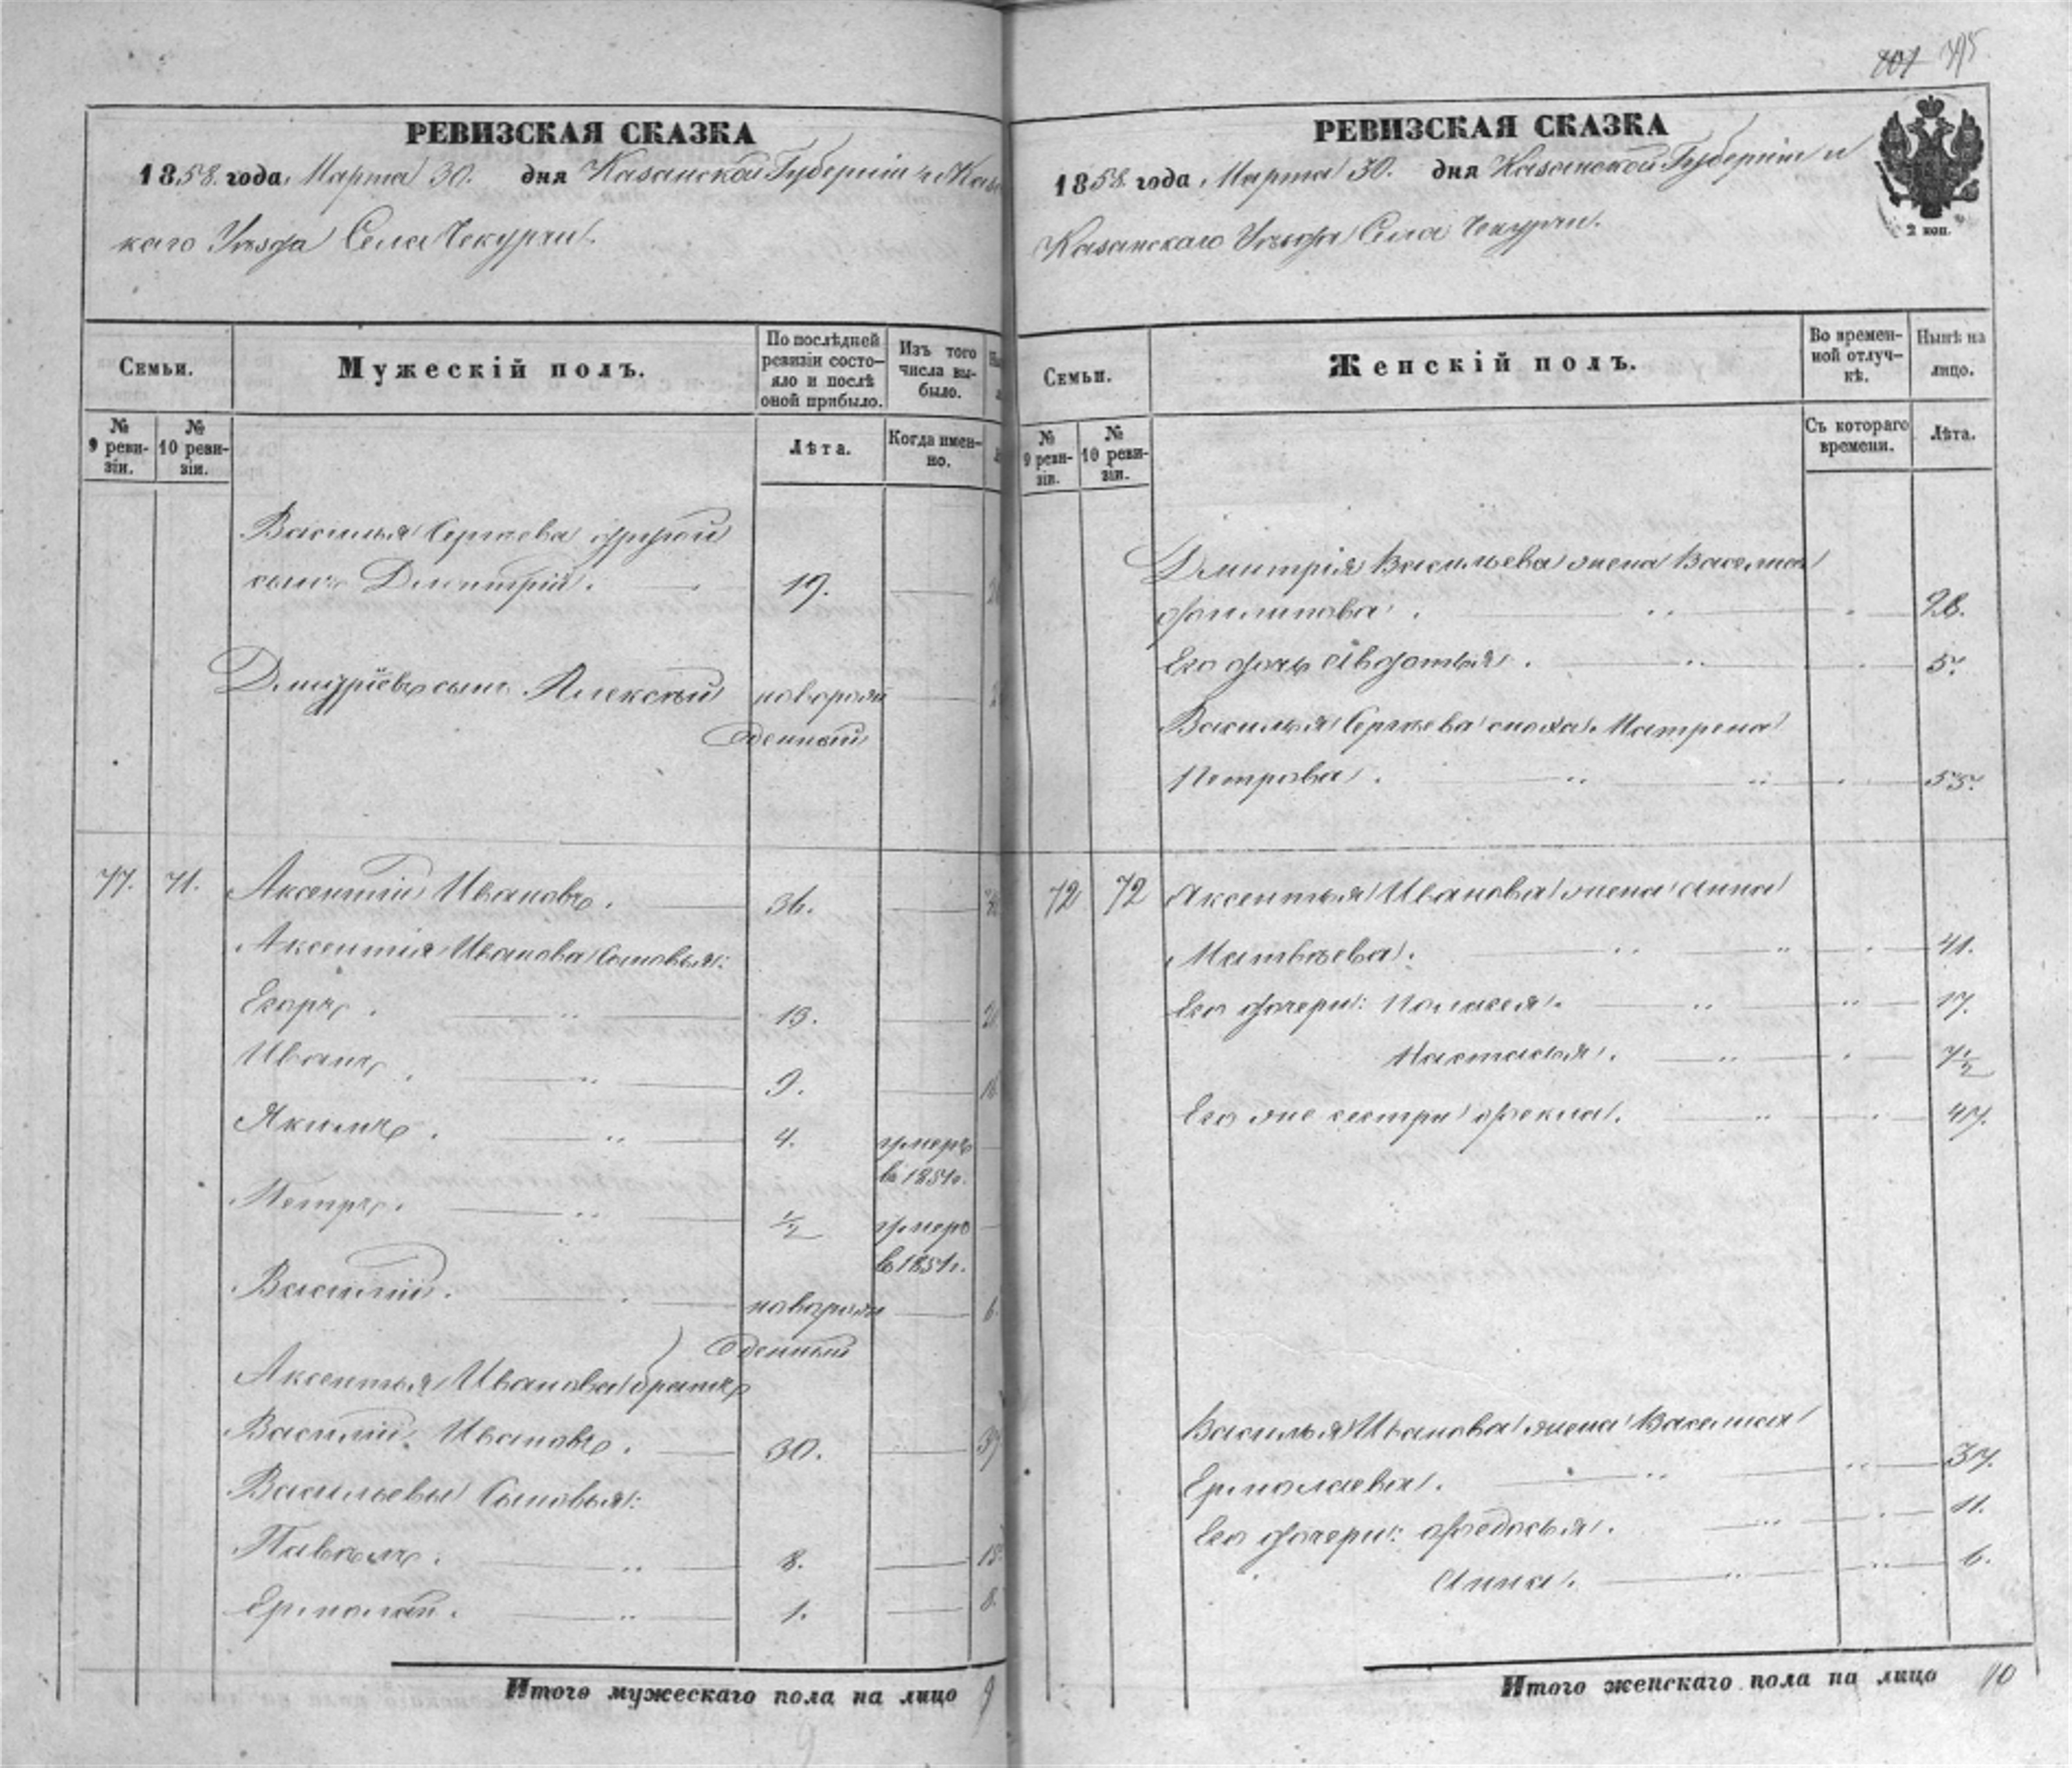 РЕВИЗСКАЯ СКАЗКА
1858 года, Марта 30. дня Казанской Губерніи и Казанс
каго Уѣзда Села Чекурчи.
Семьи.
Мужескій полъ.
По послѣдней ревизіи состо-
яло и послѣ оной прибыло.
Изъ того числа вы-
было.
№ 9 реви-
зіи.
№ 10 реви-
зіи.
Лѣта.
Когда имен-
но.
Василья Сергѣева другой
сынъ Дмитрій. 19.
Дмитріевъ сынъ Алексѣй новорож
денный
77. 71. Аксентій Ивановъ. 36.
Аксентія Иванова сыновья:
Егоръ. 13.
Иванъ. 9.
Якимъ. 4. умеръ
въ 1851г.
Петръ. ½ умеръ
въ 1851г.
Василій. новорож 6.
денный
Аксентья Иванова братъ
Василій Ивановъ. 30. 39
Васильевы сыновья:
Павелъ. 8.
Ермолай. 1. 8.
Итого мужескаго пола на лицо 9
9
401 395
РЕВИЗСКАЯ СКАЗКА
1858 года, Марта 30. дня Казанской Губерніи и
Казанскаго Уѣзда Села Чекурчи.
2 коп.
Семьи.
Женскій полъ.
Во времен-
ной отлуч-
кѣ.
Нынѣ на
лицо.
№ 9 реви-
зіи.
№ 10 реви-
зіи.
Съ котораго
времени.
Лѣта.
Дмитрія Васильева жена Васелиса
Филипова. 28.
Его дочь Авдотья. 5.
Василья Сергѣева сноха Матрена
Петрова. 55.
72 72 Аксентья Иванова жена Анна
Матвѣева. 41.
Его дочери: Палагея. 17.
Настасья. 7½
Его же сестра Фекла. 47.
Василья Иванова жена Васелиса
Ермолаева. 37.
Его дочери: Федосья. 11.
Анна. 6.
Итого женскаго пола на лицо 10